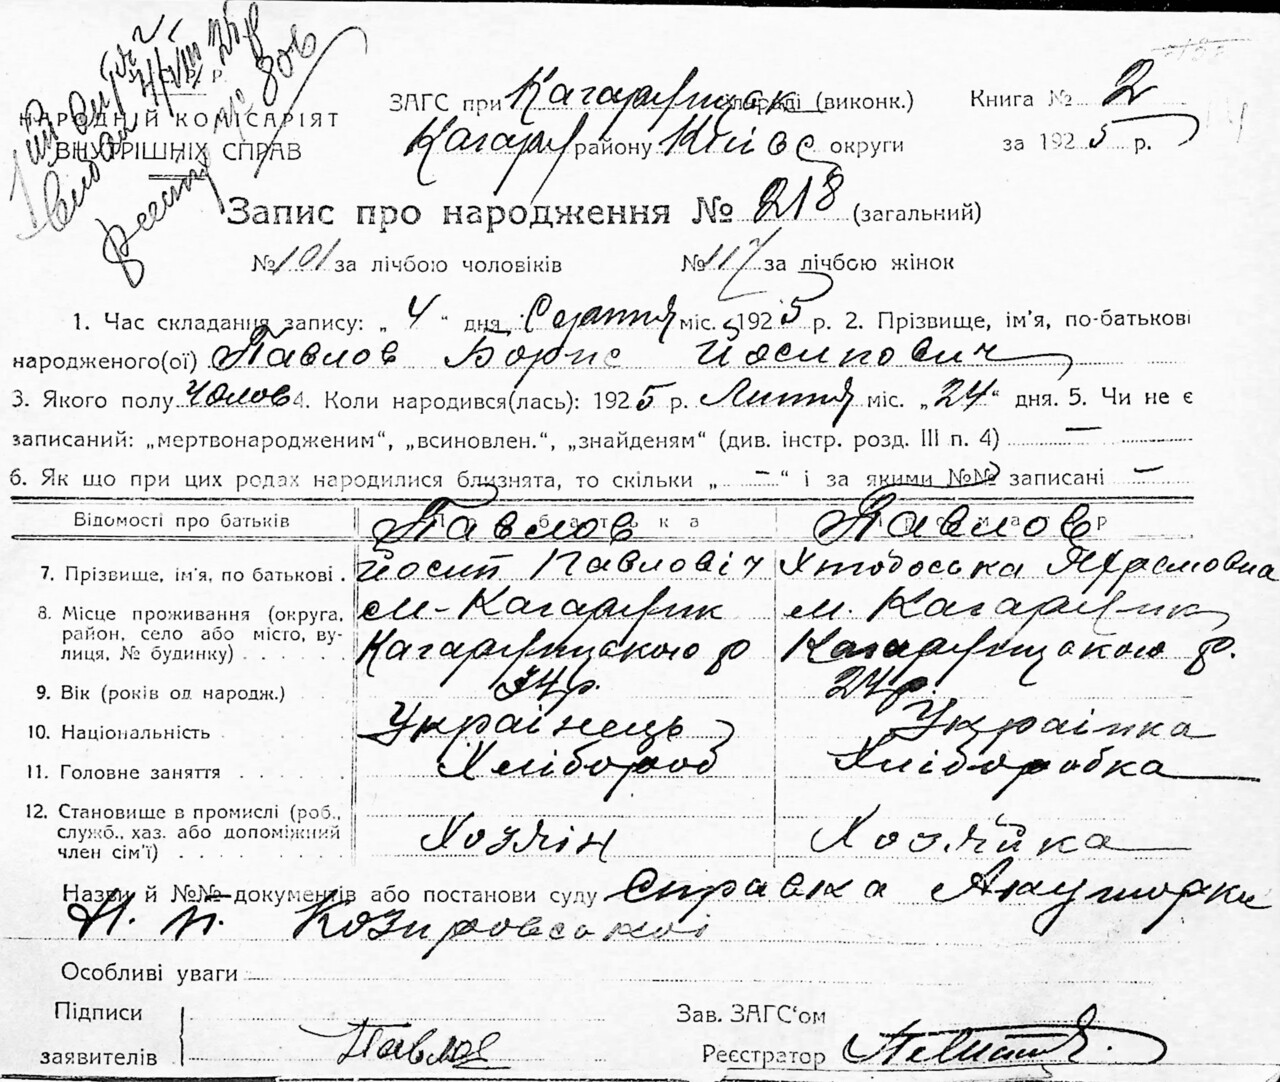 У. С. Р. Р.
НАРОДНІЙ КОМІСАРІЯТ
ВНУТРІШНІХ СПРАВ
ЗАГС при Кагарлицьк. (виконк.)
Кагарл району Київс округи
Книга № 2
за 1925 р.
Запис про народження № 218 (загальний)
№ 101 за лічбою чоловіків № 117 за лічбою жінок
1. Час складання запису: „ 4 “ дня Серпня міс. 1925 р. 2. Прізвище, ім'я, по-батькові
народженого(ої) Павлов Борис Йосипович
3. Якого полу Чолов 4. Коли народився(лась): 1925 р. Липня міс. „24“ дня. 5. Чи не є
записаний: „мертвонародженим“, „всиновлен.“, „знайденям“ (див. інстр. розд. III п. 4) —
6. Як що при цих родах народилися близнята, то скільки „ — “ і за якими №№ записані —
Відомості про батьків Павлов Павлов
7. Прізвище, ім'я, по батькові . Йосип Павловіч
8. Місце проживання (округа, м-Кагарлик м. Кагарлик
район, село або місто, ву-
лиця, № будинку) . . . . . Кагарлицького р Кагарлицького р.
9. Вік (років од народж.) 34р. 24р.
10. Національність Українець Українка
11. Головне заняття . . . . . Хлібороб Хліборобка
12. Становище в промислі (роб.,
служб., хаз. або допоміжний
член сім'ї) . . . . . Хозяїн Хозяйка
Назви й №№ документів або постанови суду Справка Акушорки
Н. П. Козировської
Особливі уваги
Підписи
заявителів Павлов
Зав. ЗАГС'ом
Реєстратор